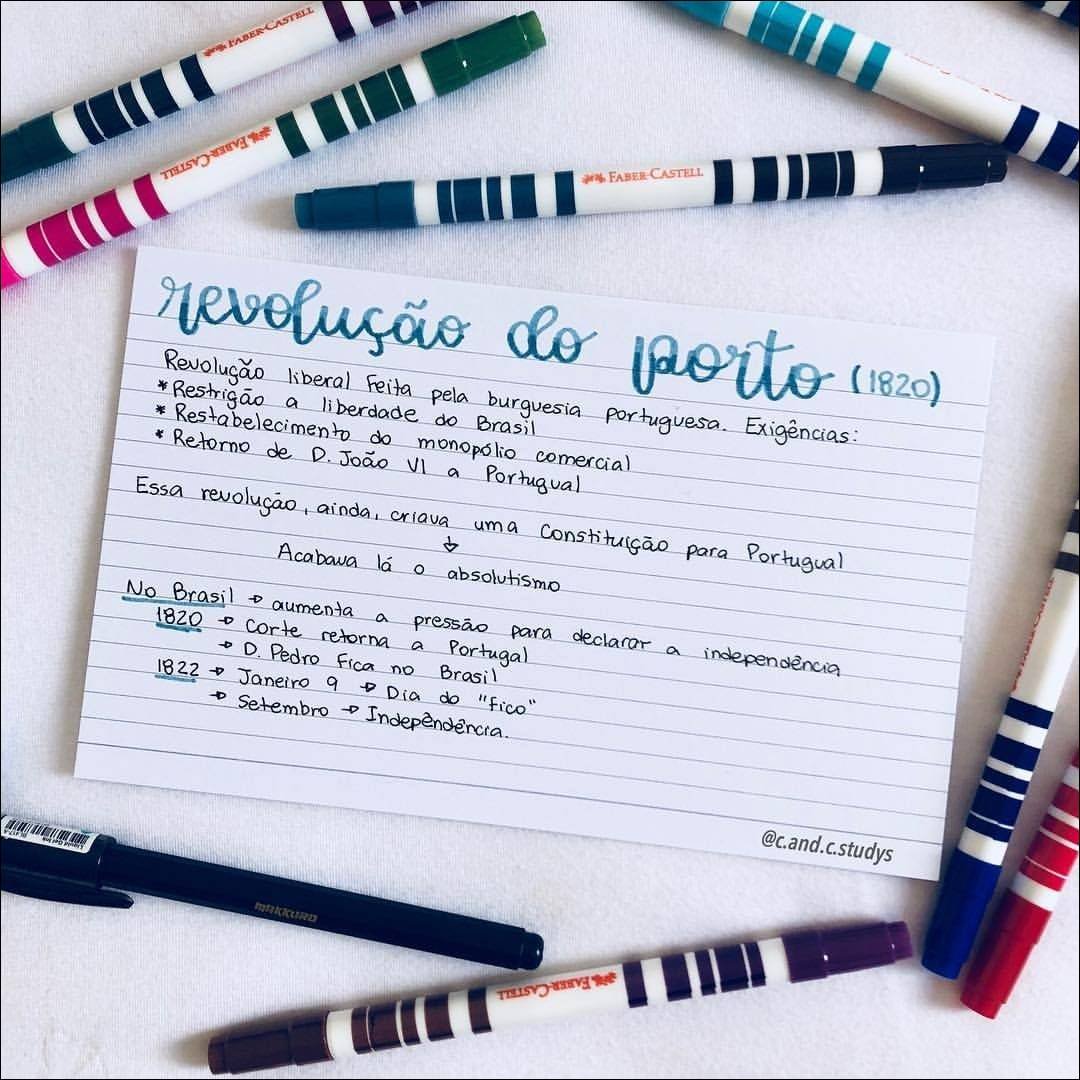 FABER-CASTELL
FABER-CASTELL
FABER-CASTELL
revolução do porto (1820)
Revolução liberal feita pela burguesia portuguesa. Exigências:
* Restrição a liberdade do Brasil
* Restabelecimento do monopólio comercial
* Retorno de D. João VI a Portugual
Essa revolução, ainda, criava uma Constituição para Portugual
↓
Acabava lá o absolutismo
No Brasil → aumenta a pressão para declarar a independência
1820 → Corte retorna a Portugal
→ D. Pedro Fica no Brasil
1822 → Janeiro 9 → Dia do "fico"
→ Setembro → Indepêndência.
@c.and.c.studys
Liquid Gel Ink
MAKKURO
FABER-CASTELL